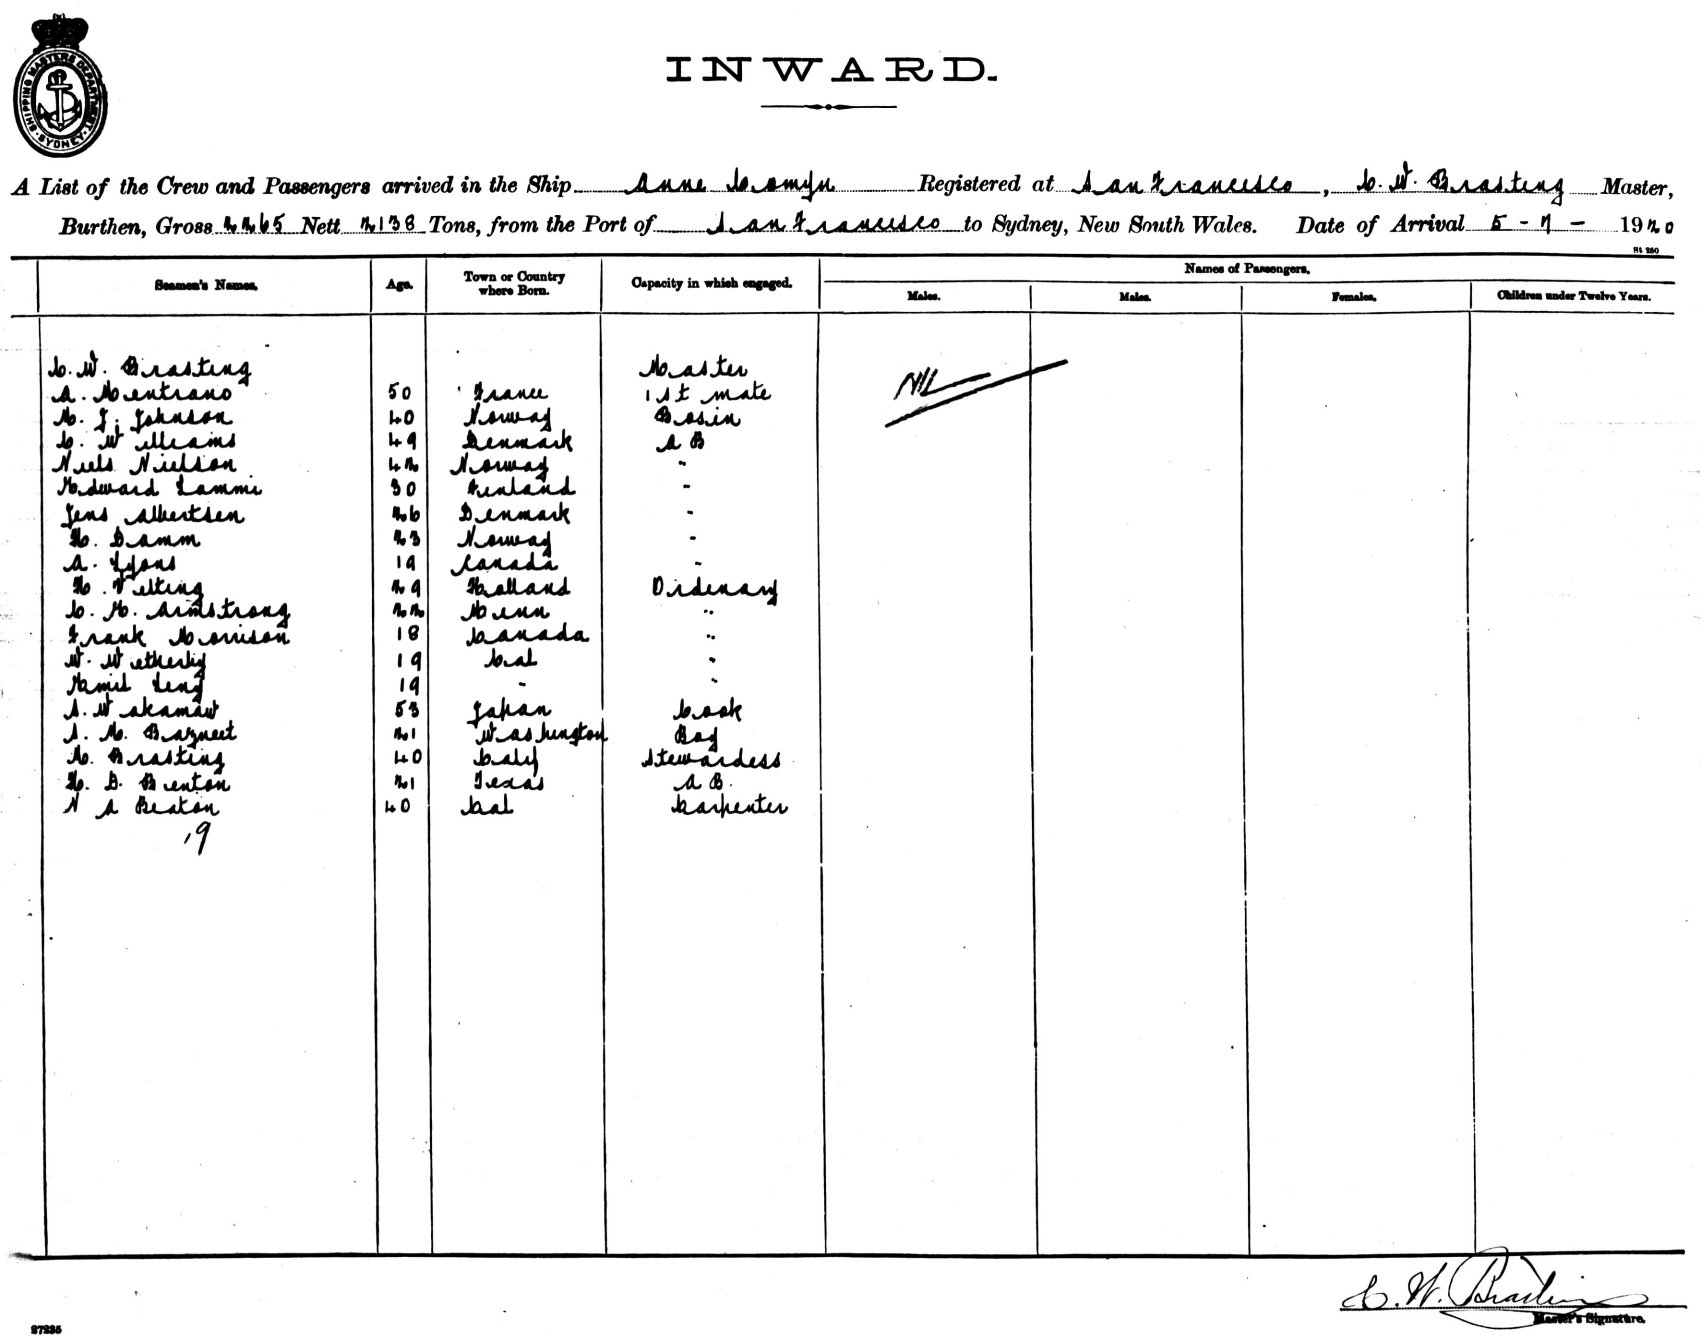 SHIPPING MASTERS DEPARTMENT. SYDNEY.
INWARD.
A List of the Crew and Passengers arrived in the Ship Anne Comyn Registered at San Francisco, C. W. Brasting Master,
Burthen, Gross 2265 Nett 2138 Tons, from the Port of San Francisco to Sydney, New South Wales. Date of Arrival 5-7-1920
St 250
Seamen's Names. Age. Town or Country where Born. Capacity in which engaged. Names of Passengers.
Males. Males. Females. Children under Twelve Years.
C. W. Brasting Master
A. Mentrano 50 France 1st mate NIL
M. J. Johnson 40 Norway Bosin
C. Williams 49 Denmark A B
Niels Nielson 42 Norway "
Edward Lammi 30 Finland "
Jens Albertsen 26 Denmark "
H. Damm 23 Norway "
A. Lyons 19 Canada "
H. Velting 29 Holland Ordinary
C. M. Armstrong 22 Minn "
Frank Morrison 18 Canada "
W. Wetherby 19 Cal "
Emil Leng 19 " "
S. Wakamaw 53 Japan Cook
S. M. Bazneet 21 Washington Boy
M. Brasting 40 Calif Stewardess
H. D. Benton 21 Texas A B.
N A Beaton 40 Cal Carpenter
19
C. W. Brasting
Master's Signature.
27235